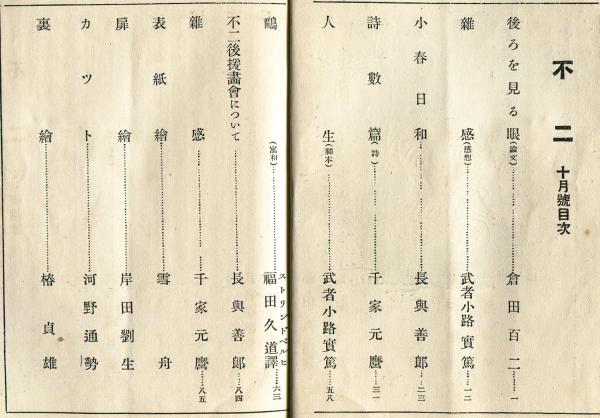 不二 十月號目次
後ろを見る眼(論文)……倉田百三…一
雜感(感想)……武者小路實篤…一二
小春日和……長與善郎…二三
詩數篇(詩)……千家元麿…三一
人生(脚本)……武者小路實篤…五八
鷗(寓和)……ストリンドベルヒ 福田久道譯…六三
不二後援畫會について……長與善郎…八四
雜感……千家元麿…八五
表紙繪……雪舟
扉繪……岸田劉生
カツト……河野通勢
裏繪……椿貞雄